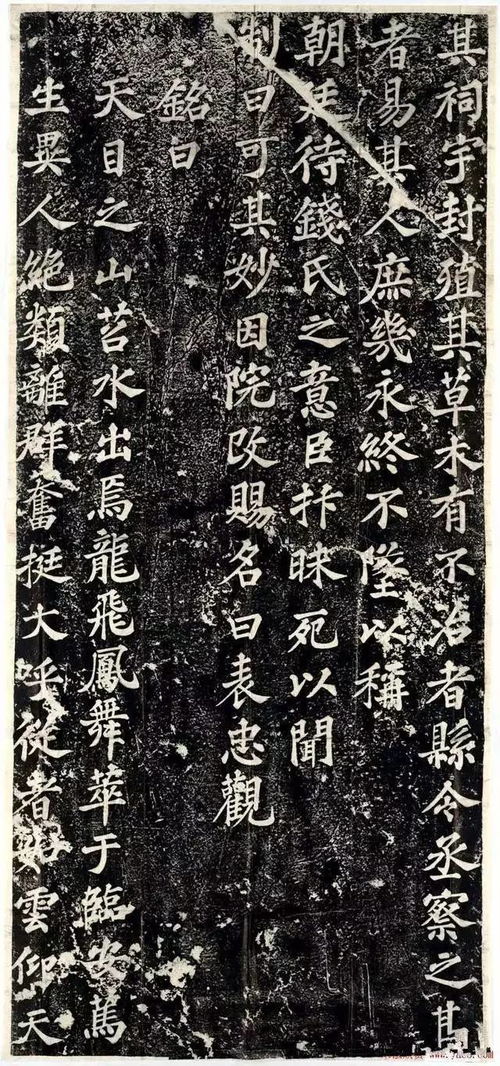 其祠宇封殖其草木有不治者縣令丞察之甚
者易其人庶幾永終不墜以稱
朝廷待錢氏之意臣抃昧死以聞
制曰可其妙因院改賜名曰表忠觀
銘曰
天目之山苕水出焉龍飛鳳舞萃于臨安篤
生異人絕類離群奮挺大呼從者如雲仰天